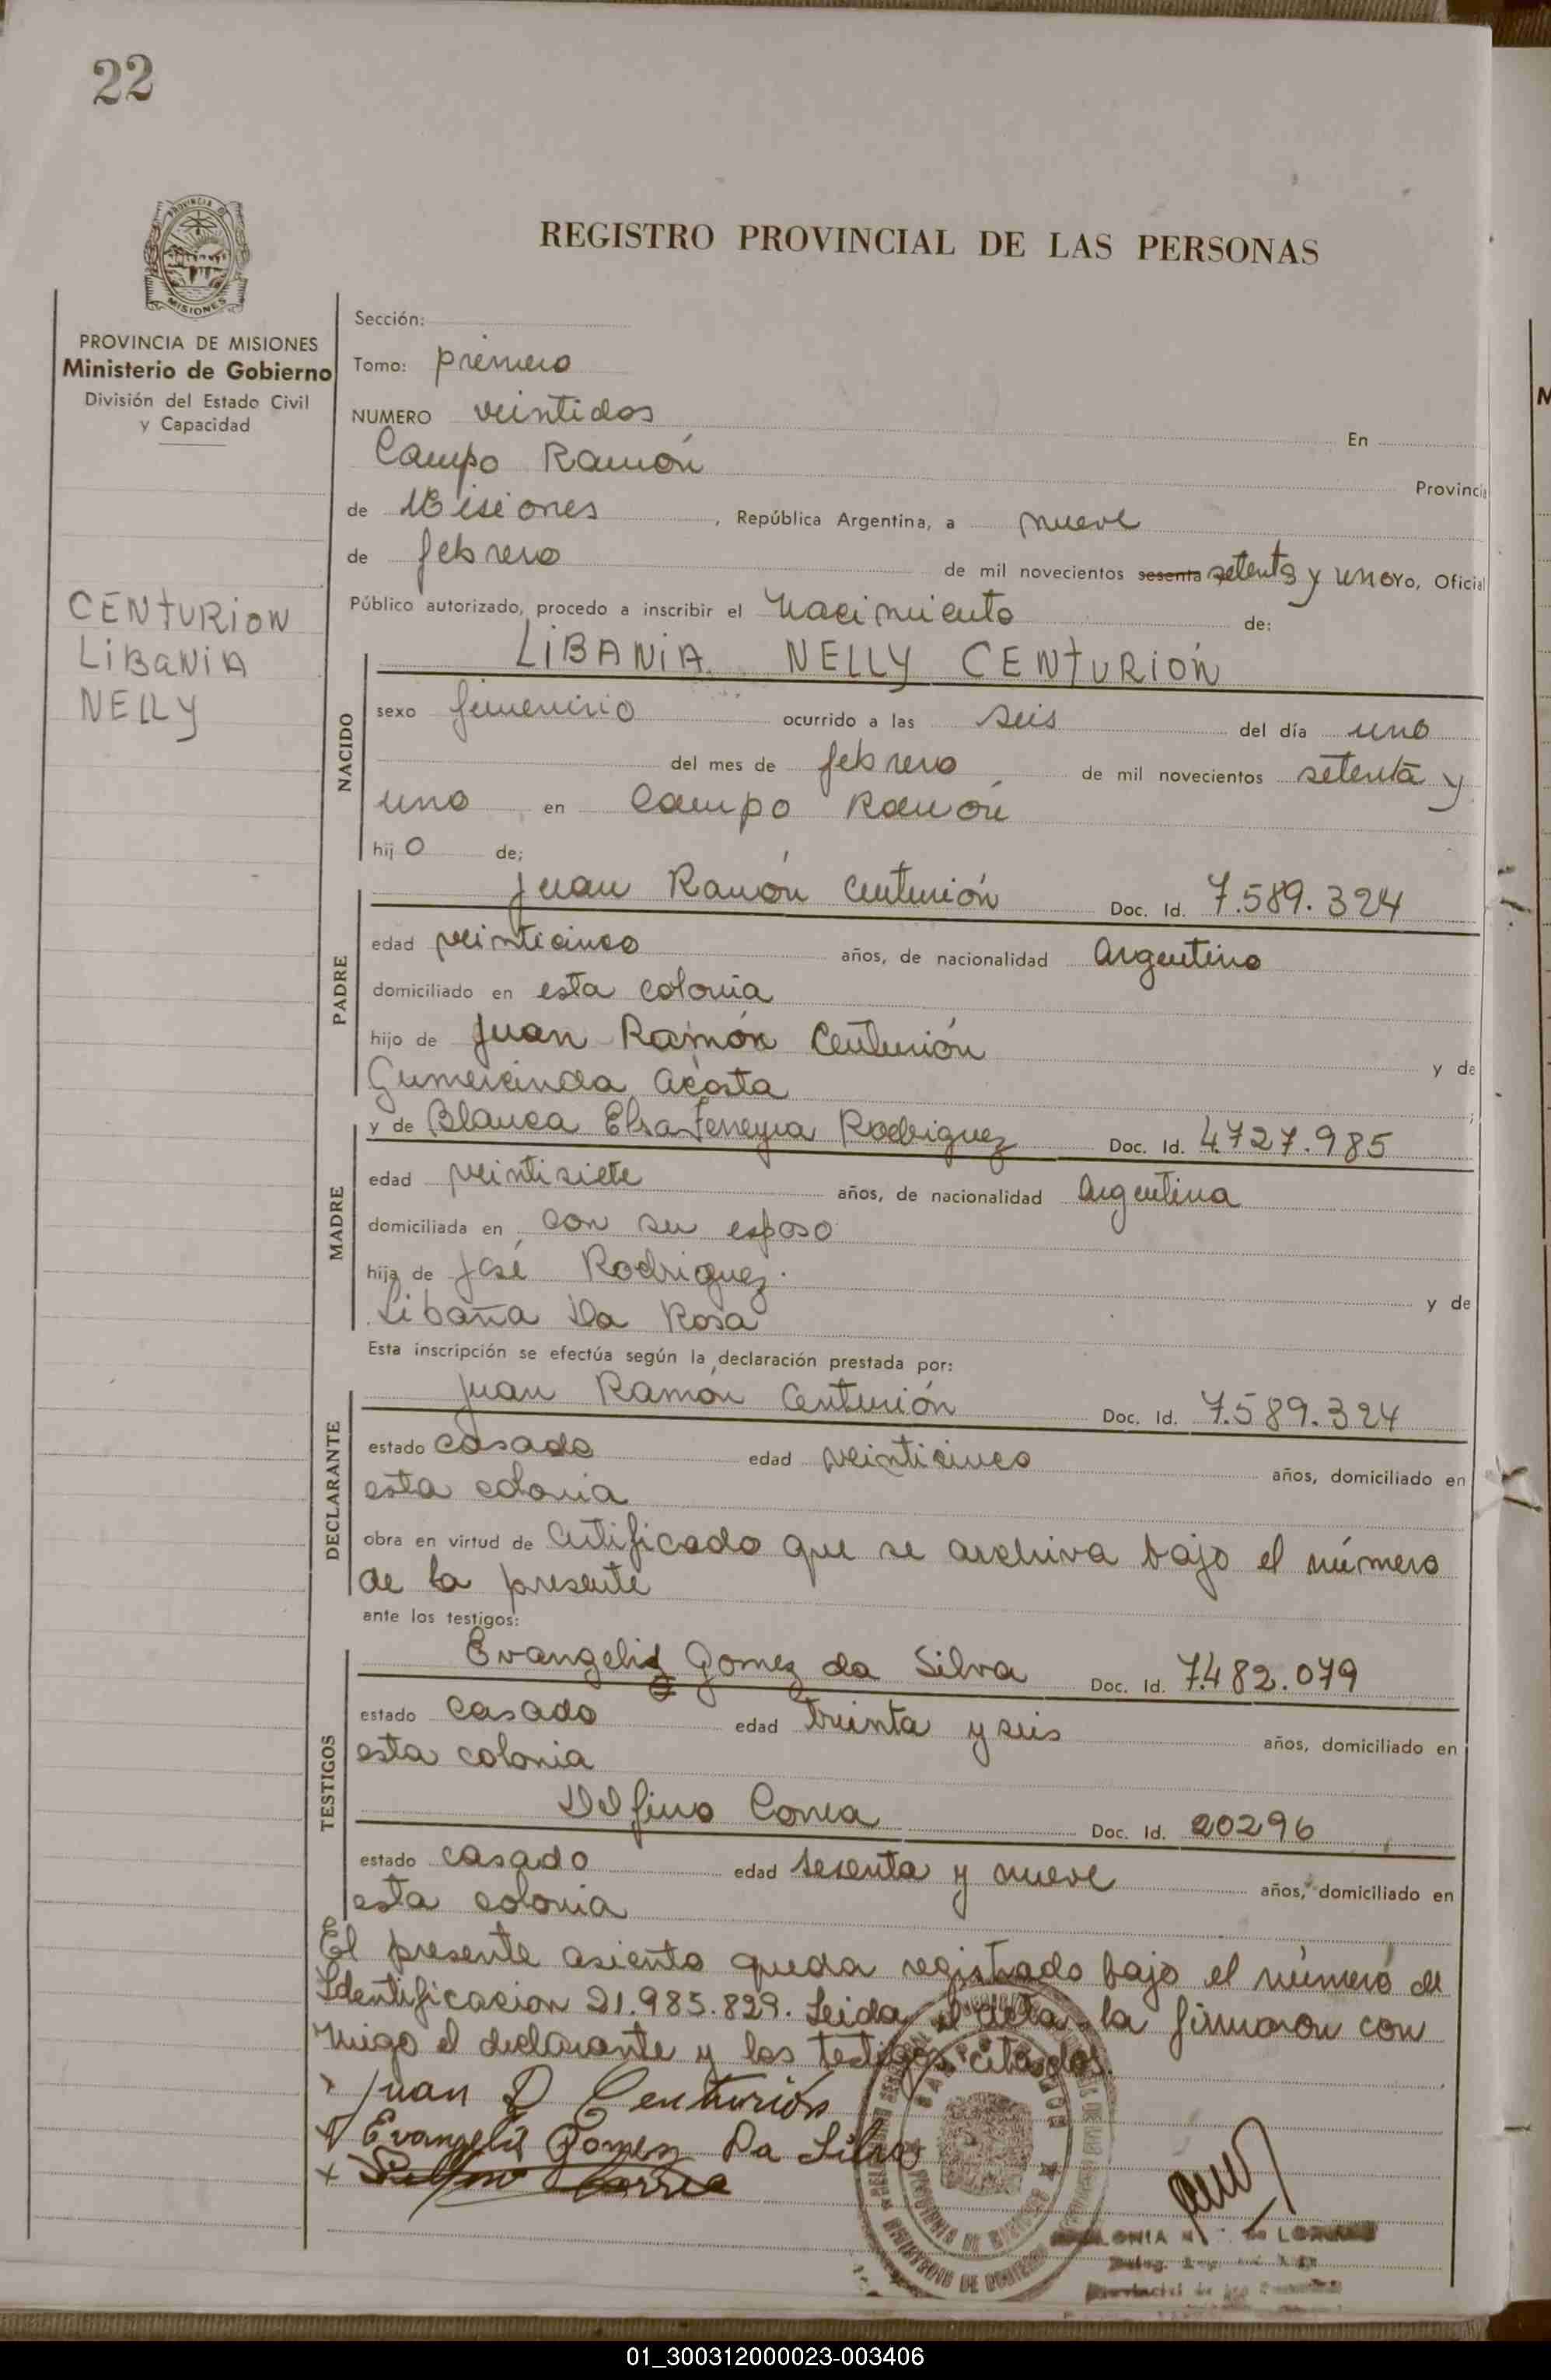 22
REGISTRO PROVINCIAL DE LAS PERSONAS
PROVINCIA DE MISIONES
Ministerio de Gobierno
División del Estado Civil
y Capacidad
CENTURION
LIBANIA
NELLY
Sección:
Tomo: primero
NUMERO veintidos En
Campo Ramón Provincia
de Misiones, República Argentina, a nueve
de febrero de mil novecientos sesenta setenta y uno Yo, Oficial
Público autorizado, procedo a inscribir el Nacimiento de:
LIBANIA NELLY CENTURIÓN
NACIDO
sexo femenino ocurrido a las seis del día uno
del mes de febrero de mil novecientos setenta y
uno en Campo Ramón
hijo de;
PADRE
Juan Ramón Centurión Doc. Id. 7.589.324
edad veinticinco años, de nacionalidad Argentino
domiciliado en esta colonia
hijo de Juan Ramón Centurión y de
Gumercinda Acosta
MADRE
y de Blanca Elsa Ferreyra Rodriguez Doc. Id. 4.727.985
edad veintisiete años, de nacionalidad Argentina
domiciliada en con su esposo
hija de José Rodriguez y de
Libaña Da Rosa
Esta inscripción se efectúa según la declaración prestada por:
DECLARANTE
Juan Ramón Centurión Doc. Id. 7.589.324
estado casado edad veinticinco años, domiciliado en
esta colonia
obra en virtud de Certificado que se archiva bajo el número
de la presente
ante los testigos:
TESTIGOS
Gomez da Silva Doc. Id. 7.482.079
estado casado edad treinta y seis años, domiciliado en
esta colonia
Delfino Correa Doc. Id. 20296
estado casado edad sesenta y nueve años, domiciliado en
esta colonia
El presente asiento queda registrado bajo el número de
Identificacion 21.985.829. Leida el acta la firmaron con
migo el declarante y los testigos citados
Juan R Centurión
Gomes Da Silva
Delfino Correa
01_300312000023-003406